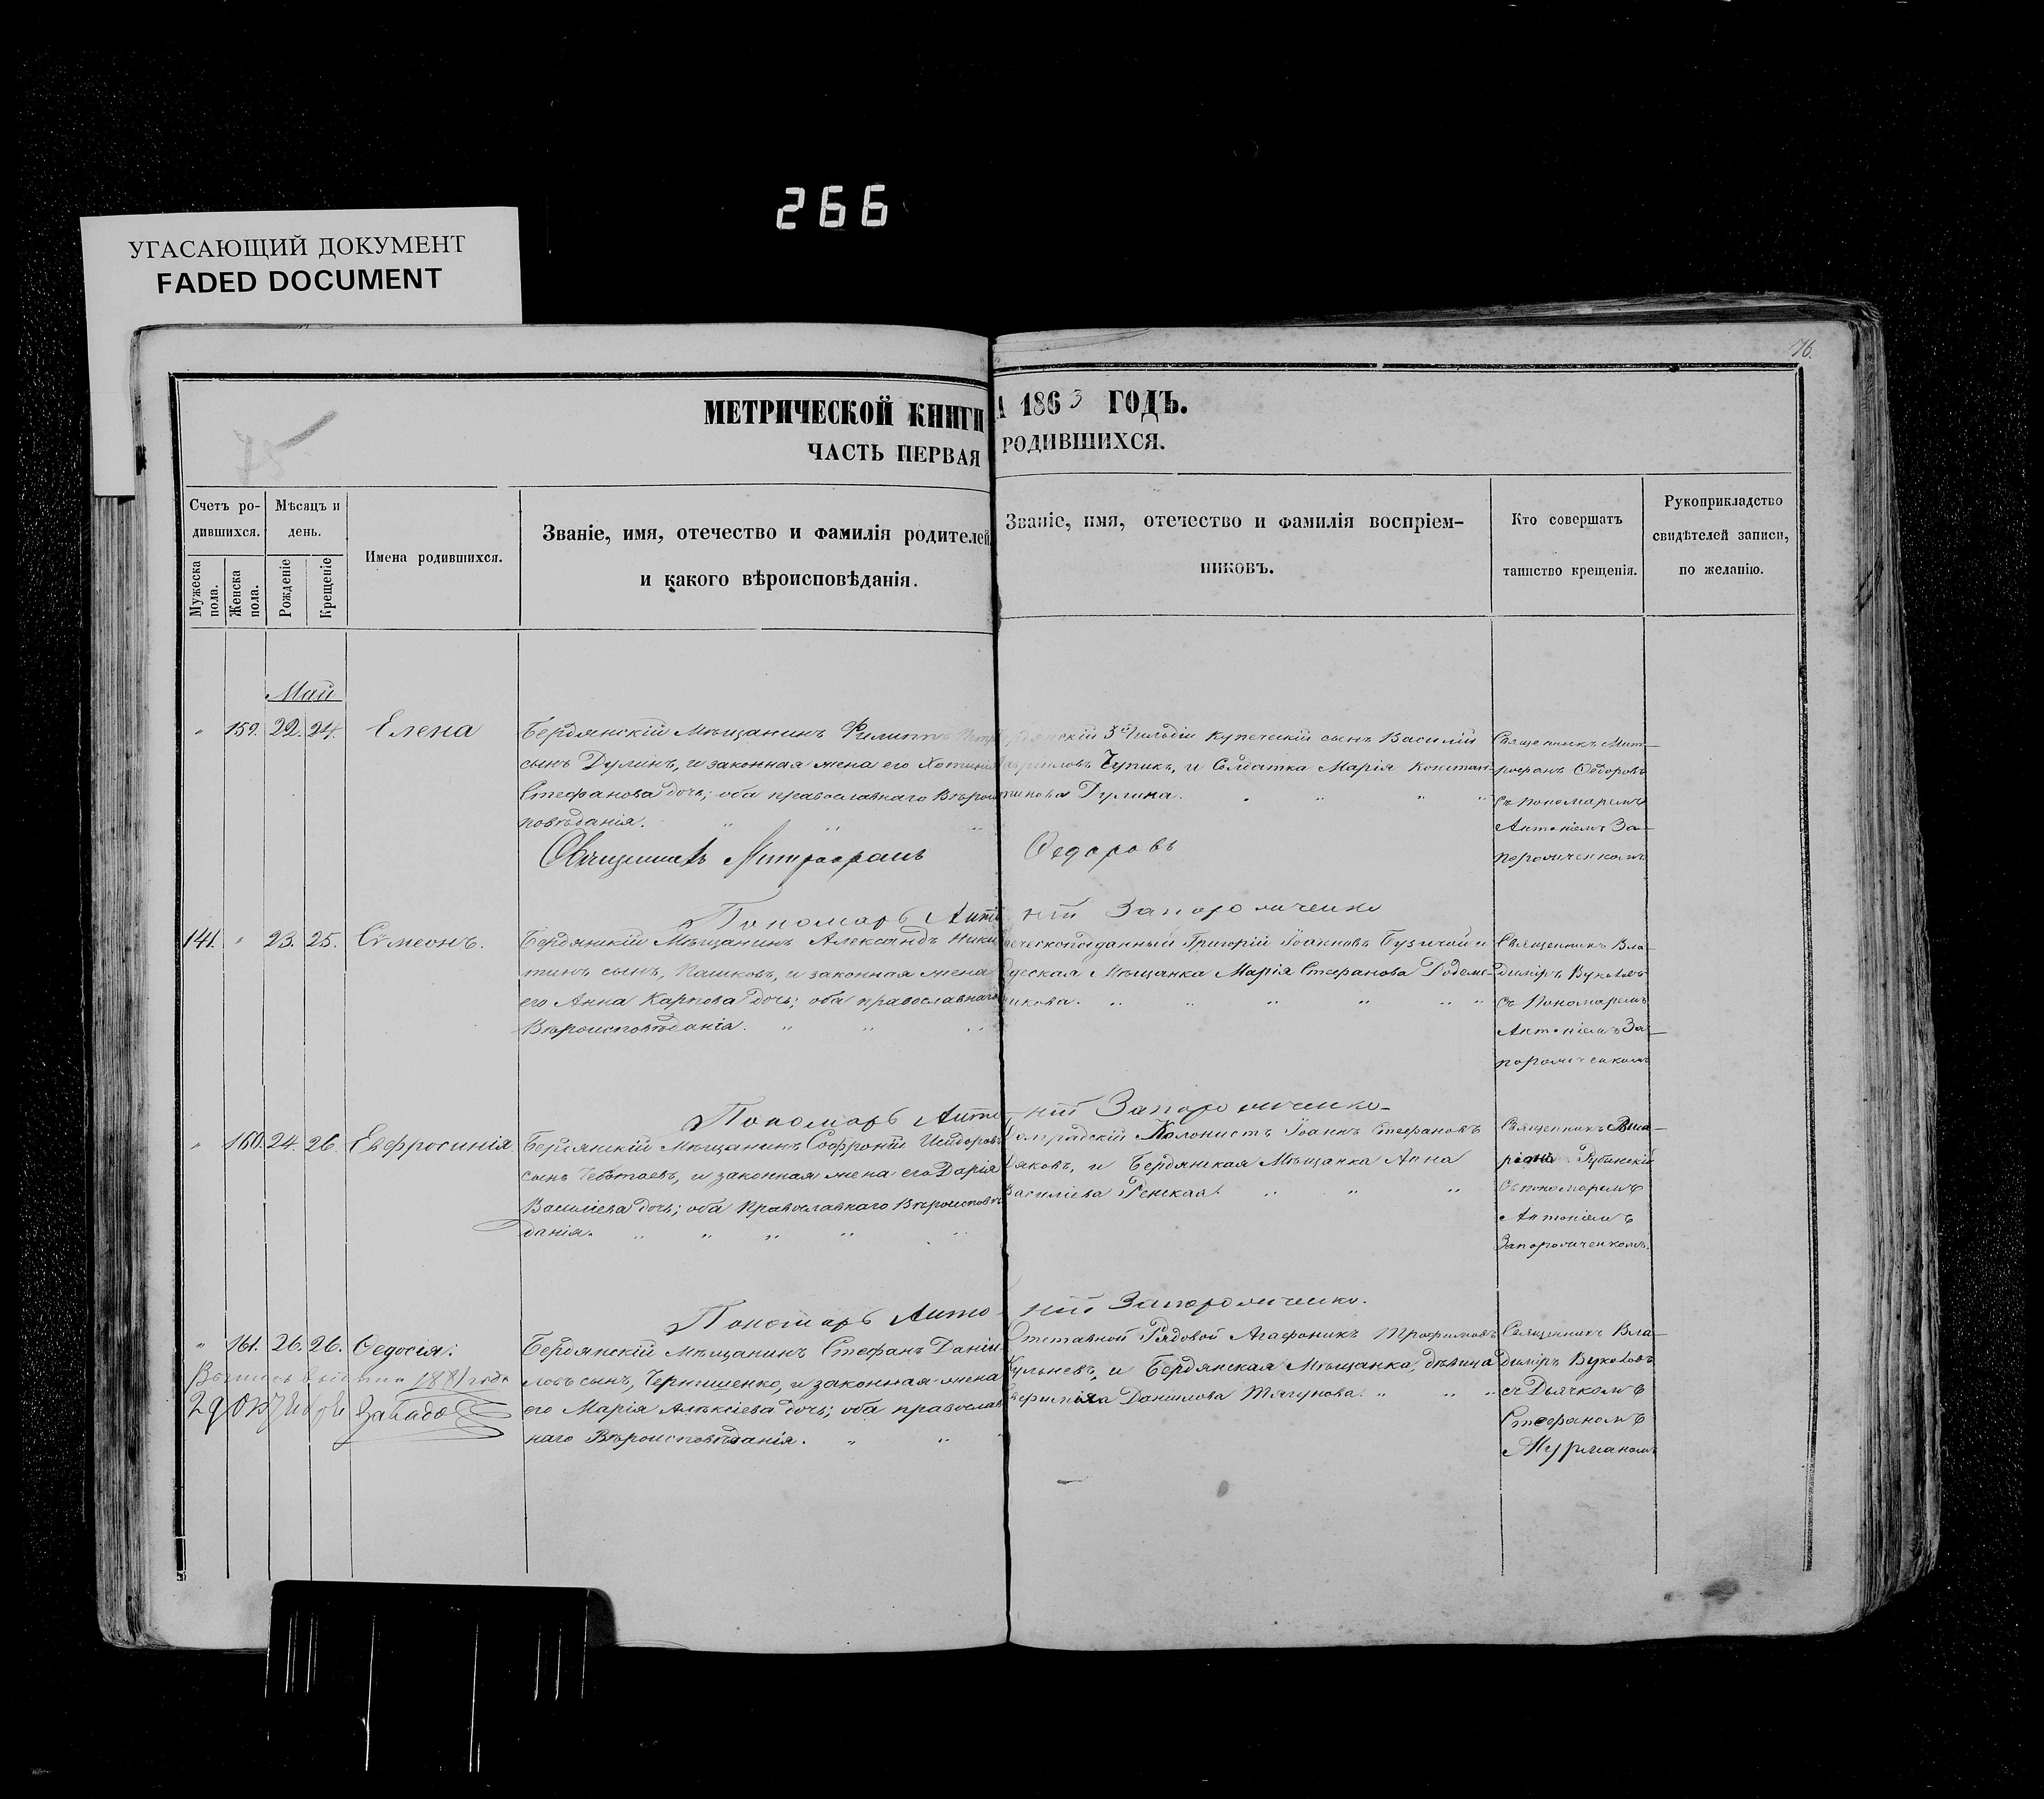 266
УГАСАЮЩИЙ ДОКУМЕНТ
FADED DOCUMENT
76.
МЕТРИЧЕСКОЙ КНИГИ
А 1863 ГОДЪ.
ЧАСТЬ ПЕРВАЯ
РОДИВШИХСЯ.
Счетъ ро-
дившихся.
Мужеска пола.
Женска пола.
Мѣсяцъ и
день.
Рожденіе
Крещеніе
Имена родившихся.
Званіе, имя, отечество и фамилія родителей
и какого вѣроисповѣданія.
Званіе, имя, отечество и фамилія воспріем-
никовъ.
Кто совершатъ
таинство крещенія.
Рукоприкладство
свидѣтелей записи,
по желанію.
Май
" 159. 22. 24. Елена
Бердянскій Мѣщанинъ Филиппъ
сынъ Дулинъ, и законная жена его
Стефанова дочь; оба православнаго Вѣроис
повѣданія.
рдянскій 3й гильдіи купеческій сынъ Василій
Чупикъ, и Солдатка Марія Констан-
тинова Дулина.
Священникъ Мит-
рофанъ Ѳедоровъ
съ Пономаремъ
Антоніемъ За-
порожченкомъ
Священникъ Митрофанъ Ѳедоровъ
Пономарь Антоній Запорожченко
141. " 23. 25. Сѵмеонъ.
Бердянскій Мѣщанинъ Александъ Ники
тинъ сынъ, Пашковъ, и законная жена
его Анна Карпова дочь; оба православнаго
Вѣроисповѣданія.
реческоподданный Григорій Іоанновъ и
десская Мѣщанка Марія Стефанова
никова.
Священникъ Вла-
димиръ Вуколовъ
съ Пономаремъ
Антоніемъ За-
порожченкомъ
Пономарь Антоній Запорожченко
" 160. 24. 26. Евфросинія
Бердянскій Мѣщанинъ Софроній Исидоровъ
сынъ Чеботаевъ, и законная жена его Дарія
Василіева дочь; оба Православнаго Вѣроисповѣ
данія.
Колонистъ Іоаннъ Стефановъ
и Бердянская Мѣщанка Анна
Василіева Ренская.
Священникъ
Рубинскій
съ пономаремъ
Антоніемъ
Запорожченкомъ.
Пономарь Антоній Запорожченко.
" 161. 26. 26. Ѳедосія.
Бердянскій Мѣщанинъ Стефанъ Даніи-
ловъ сынъ, Чернишенко, и законная жена
его Марія Алексіева дочь; оба православ
наго Вѣроисповѣданія.
Отставной Рядовой Агафоникъ Трофимовъ
Кульневъ, и Бердянская Мѣщанка, дѣвица
Данилова Тягунова.
Священникъ Вла-
димиръ Вуколовъ
съ Дьячкомъ
Стефаномъ
Муржаномъ
1881 года